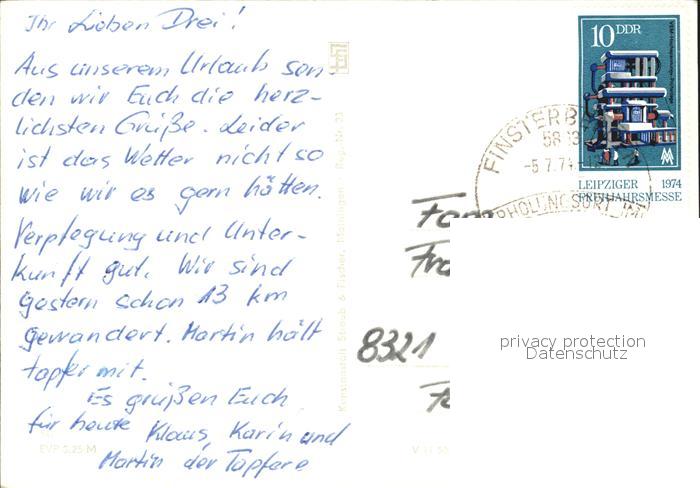 Ihr Lieben Drei!
Aus unserem Urlaub sen-
den wir Euch die herz-
lichsten Grüße. Leider
ist das Wetter nicht so
wie wir es gern hätten.
Verpflegung und Unter-
kunft gut. Wir sind
gestern schon 13 km
gewandert. Martin hält
tapfer mit.
Es grüßen Euch
für heute Klaus, Karin und
Martin der Tapfere
EVP 0,25 M
Kunstanstalt Straub & Fischer, Meiningen
10 DDR
LEIPZIGER 1974
FRÜHJAHRSMESSE
FINSTERB
-5.7.74
ERHOLUNGSORT IM
Fam
8321
privacy protection
Datenschutz